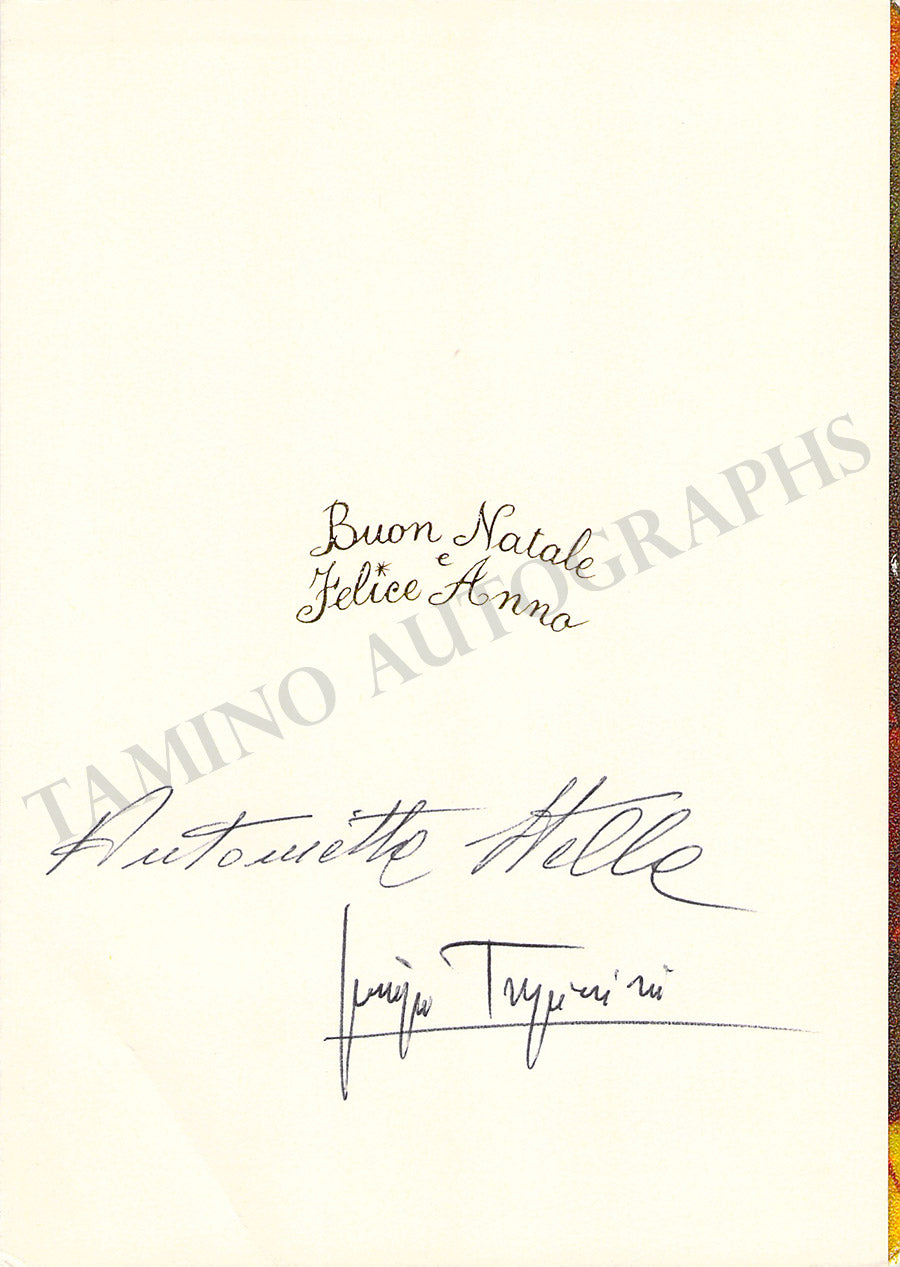 Buon Natale
e
Felice Anno
TAMINO AUTOGRAPHS
Antonietta Stella